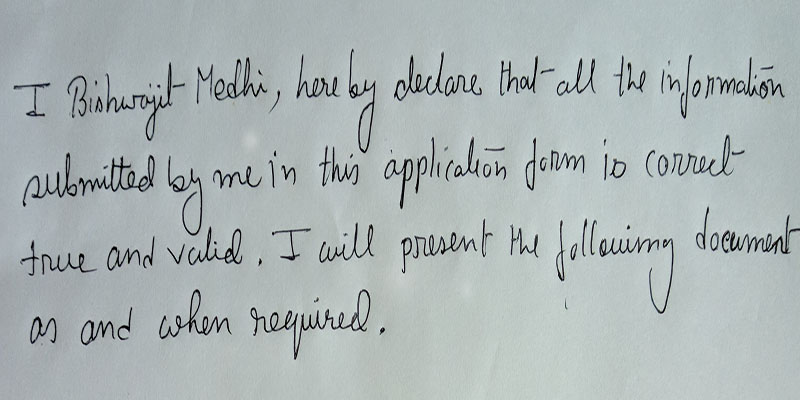 I Bishwajit Medhi, hereby declare that all the information
submitted by me in this application form is correct
true and valid. I will present the following document
as and when required.